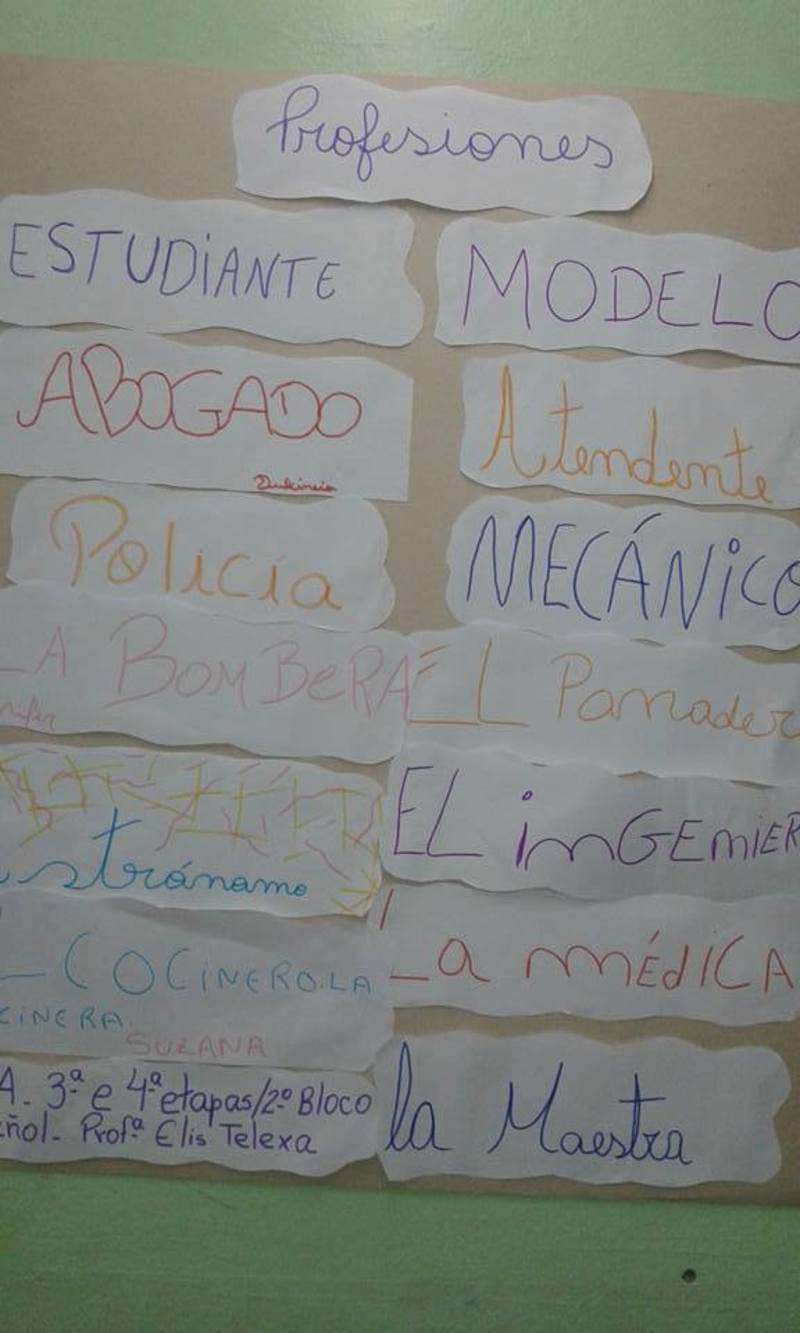 Profesiones
ESTUDIANTE
MODELO
ABOGADO
Dulcineia
Atendente
Policía
MECÁNICO
LA BOMBERA
EL Panader
EL inGEniER
astrónamo
COCINERO. LA
CINERA
SUZANA
La MÉdICA
A. 3ª e 4ª etapas/2º Bloco
ñol - Profª Elis Telexa
la Maestra